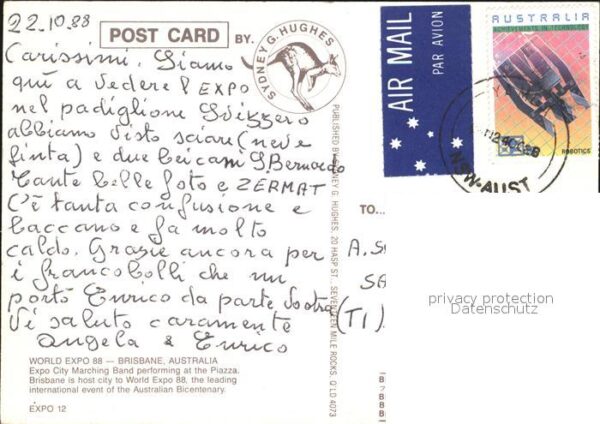 22.10.88
POST CARD BY:
SYDNEY G. HUGHES
Carissimi, Siamo
quì a vedere l'EXPO
nel padiglione Svizzero
abbiamo visto sciare (neve
finta) e due bei cani S. Bernardo
Tante belle foto e ZERMAT
C'è tanta confusione e
baccano e fa molto
caldo. Grazie ancora per
i francobolli che mi
portò Enrico da parte Vostra
Vi saluto caramente
Angela & Enrico
WORLD EXPO 88 — BRISBANE, AUSTRALIA
Expo City Marching Band performing at the Piazza.
Brisbane is host city to World Expo 88, the leading
international event of the Australian Bicentenary.
EXPO 12
PUBLISHED BY SYDNEY G. HUGHES, 20 HASP ST. SEVENTEEN MILE ROCKS, QLD 4073
AIR MAIL
PAR AVION
AUSTRALIA
ACHIEVEMENTS IN TECHNOLOGY
ROBOTICS
NSW-AUST
TO...
A. S
SA
(TI)
privacy protection
Datenschutz